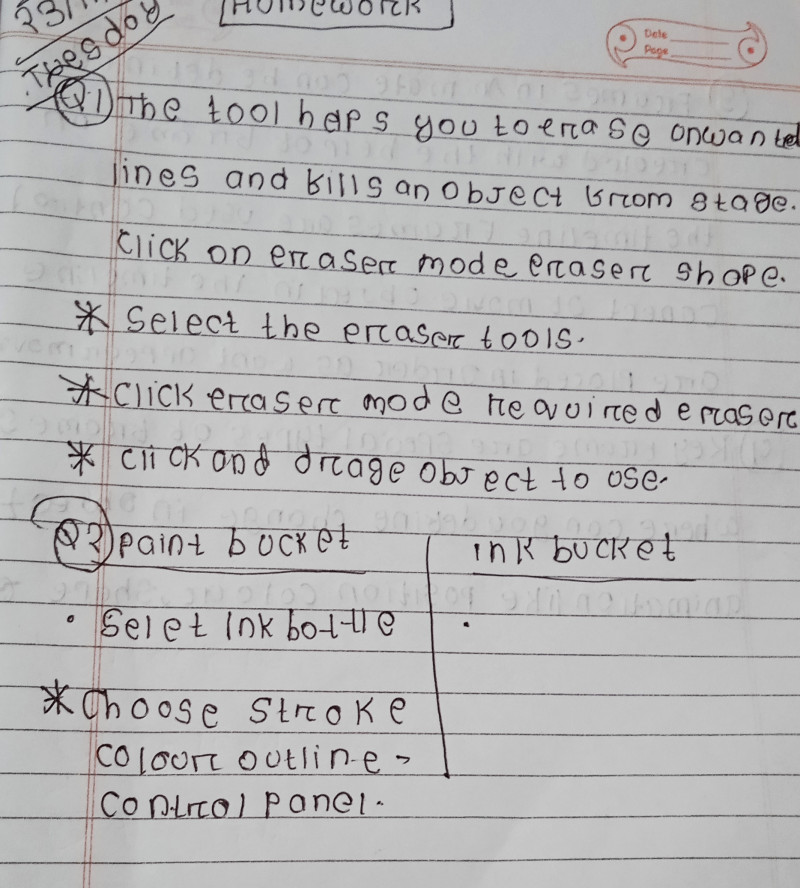 23/
Tuesday
Homework
Date
Page
Q1) The tool helps you to erase onwanted
lines and kills an object from stage.
Click on eraser mode eraser shope.
* Select the eraser tools.
* Click eraser mode required eraser
* click and drage object to use.
Q2) paint bucket
ink bucket
• Selet Ink bottle
•
* Choose stroke
colour outline -
control panel.